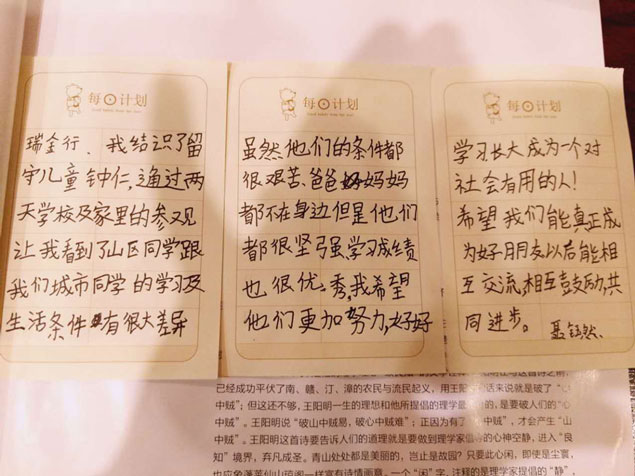 每日计划
瑞金行、我结识了留
守儿童钟仁,通过两
天学校及家里的参观
让我看到了山区同学跟
我们城市同学的学习及
生活条件有很大差异
每日计划
虽然他们的条件都
很艰苦、爸爸妈妈
都不在身边但是他们
都很坚强、学习成绩
也很优秀,我希望
他们更加努力,好好
学习长大成为一个对
社会有用的人!
希望我们能真正成
为好朋友以后能相
互交流,相互鼓励,共
同进步。
已经成功平伏了南、赣、汀、漳的农民与流民起义,用王
话来说就是破了
中贼”;但这还不够,王阳明一生的理想和他所提倡的理学
的,是要破人们的“心
中贼”。王阳明说“破山中贼易,破心中贼难”;正因为有了
,才会产生“山
中贼”。王阳明这首诗要告诉人们的道理就是要做到理学家倡
的心神空静,进入“良
知”境界,弃凡成圣。青山处处都是美丽的,岂止是故园?只要此心闲,即使是尘寰,